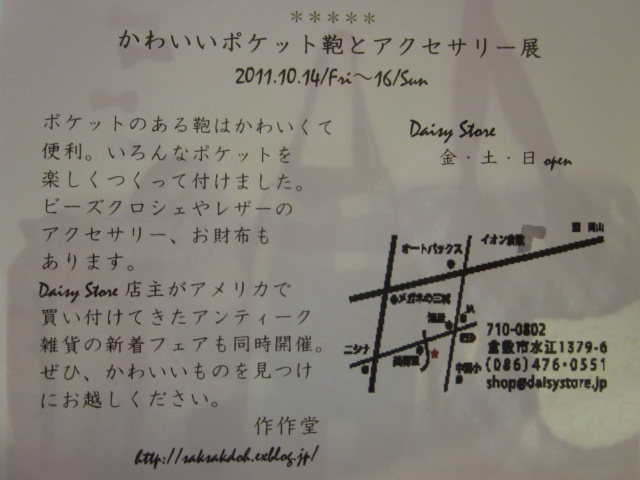 *****
かわいいポケット鞄とアクセサリー展
2011.10.14/Fri～16/Sun
ポケットのある鞄はかわいくて
便利。いろんなポケットを
楽しくつくって付けました。
ビーズクロシェやレザーの
アクセサリー、お財布も
あります。
Daisy Store 店主がアメリカで
買い付けてきたアンティーク
雑貨の新着フェアも同時開催。
ぜひ、かわいいものを見つけ
にお越しください。
作作堂
http://saksakdoh.exblog.jp/
Daisy Store
金・土・日 open
岡山
イオン倉敷
オートバックス
メガネの三城
JA
ニシナ
中洲小
710-0802
倉敷市水江1379-6
(086)476・0551
shop@daisystore.jp